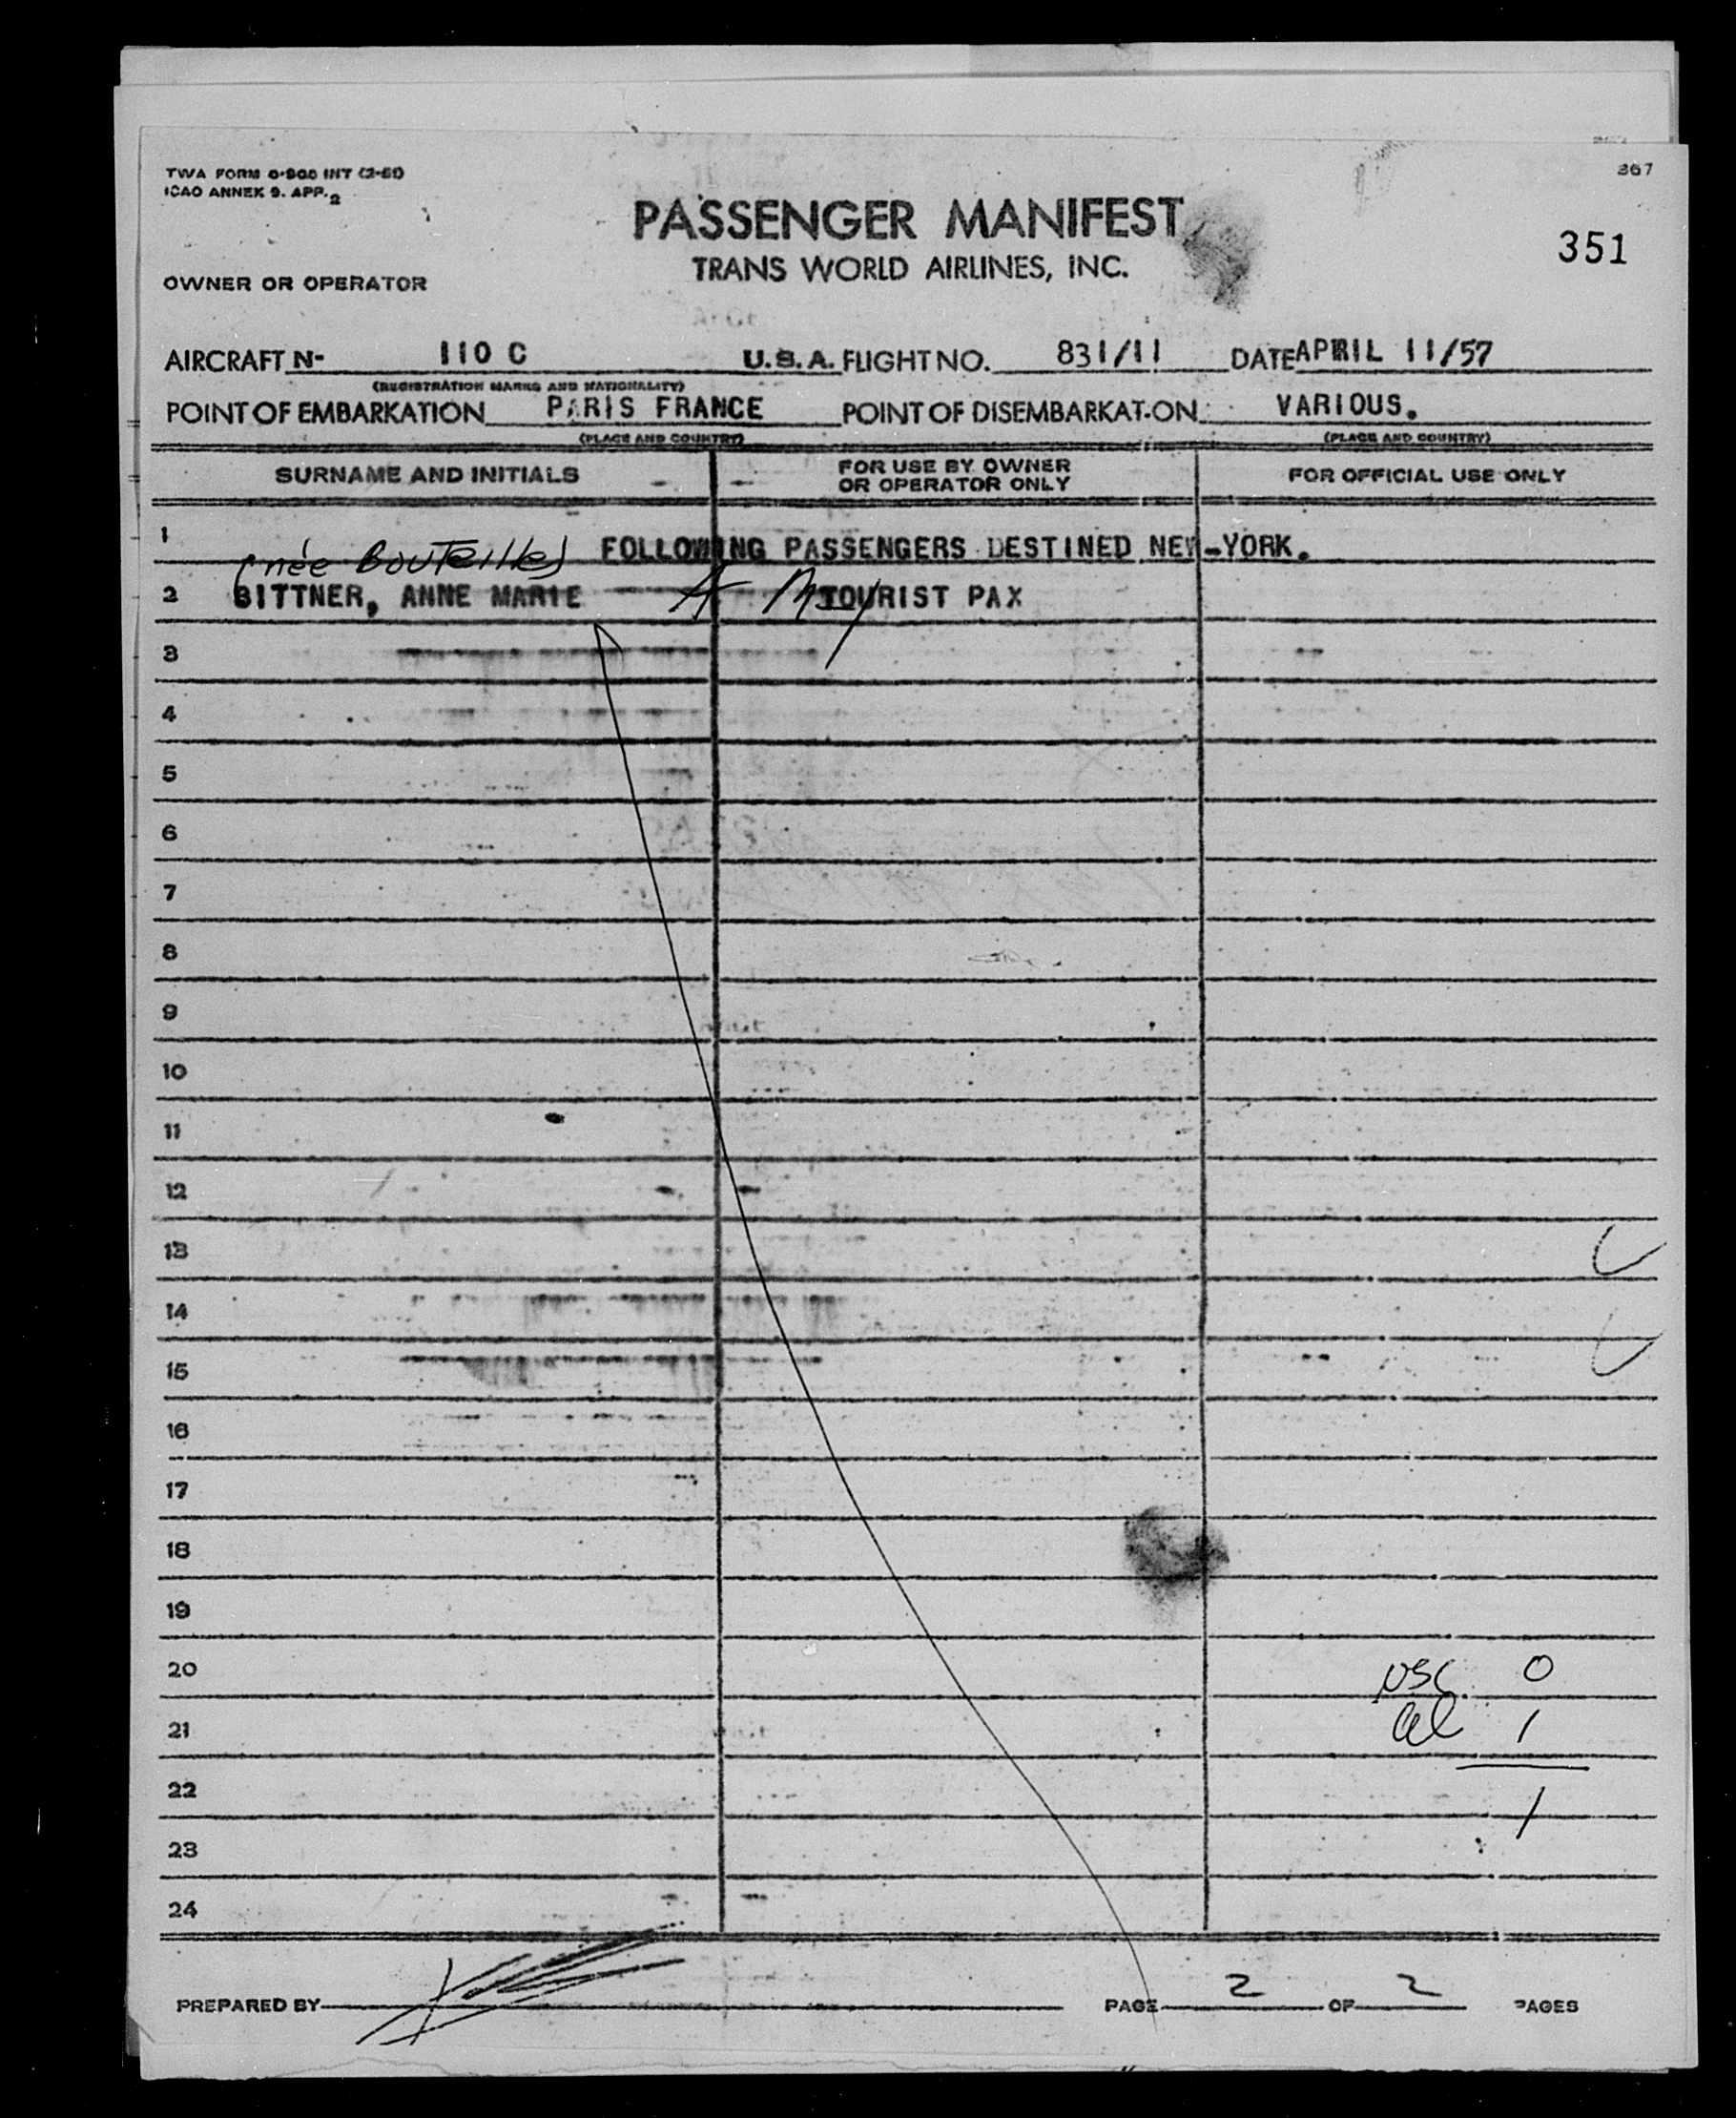 TWA FORM 0-900 INT (2-51)
ICAO ANNEX 9. APP. 2
367
PASSENGER MANIFEST
351
TRANS WORLD AIRLINES, INC.
OWNER OR OPERATOR
AIRCRAFT N- 110 C U.S.A. FLIGHT NO. 831/11 DATE APRIL 11/57
(REGISTRATION MARKS AND NATIONALITY)
POINT OF EMBARKATION PARIS FRANCE POINT OF DISEMBARKATION VARIOUS.
(PLACE AND COUNTRY) (PLACE AND COUNTRY)
SURNAME AND INITIALS FOR USE BY OWNER OR OPERATOR ONLY FOR OFFICIAL USE ONLY
1 FOLLOWING PASSENGERS DESTINED NEW-YORK.
(née Bouteille)
2 BITTNER, ANNE MARIE TOURIST PAX
3
4
5
6
7
8
9
10
11
12
13
14
15
16
17
18
19
20 USC 0
21 al 1
22 1
23
24
PREPARED BY PAGE 2 OF 2 PAGES